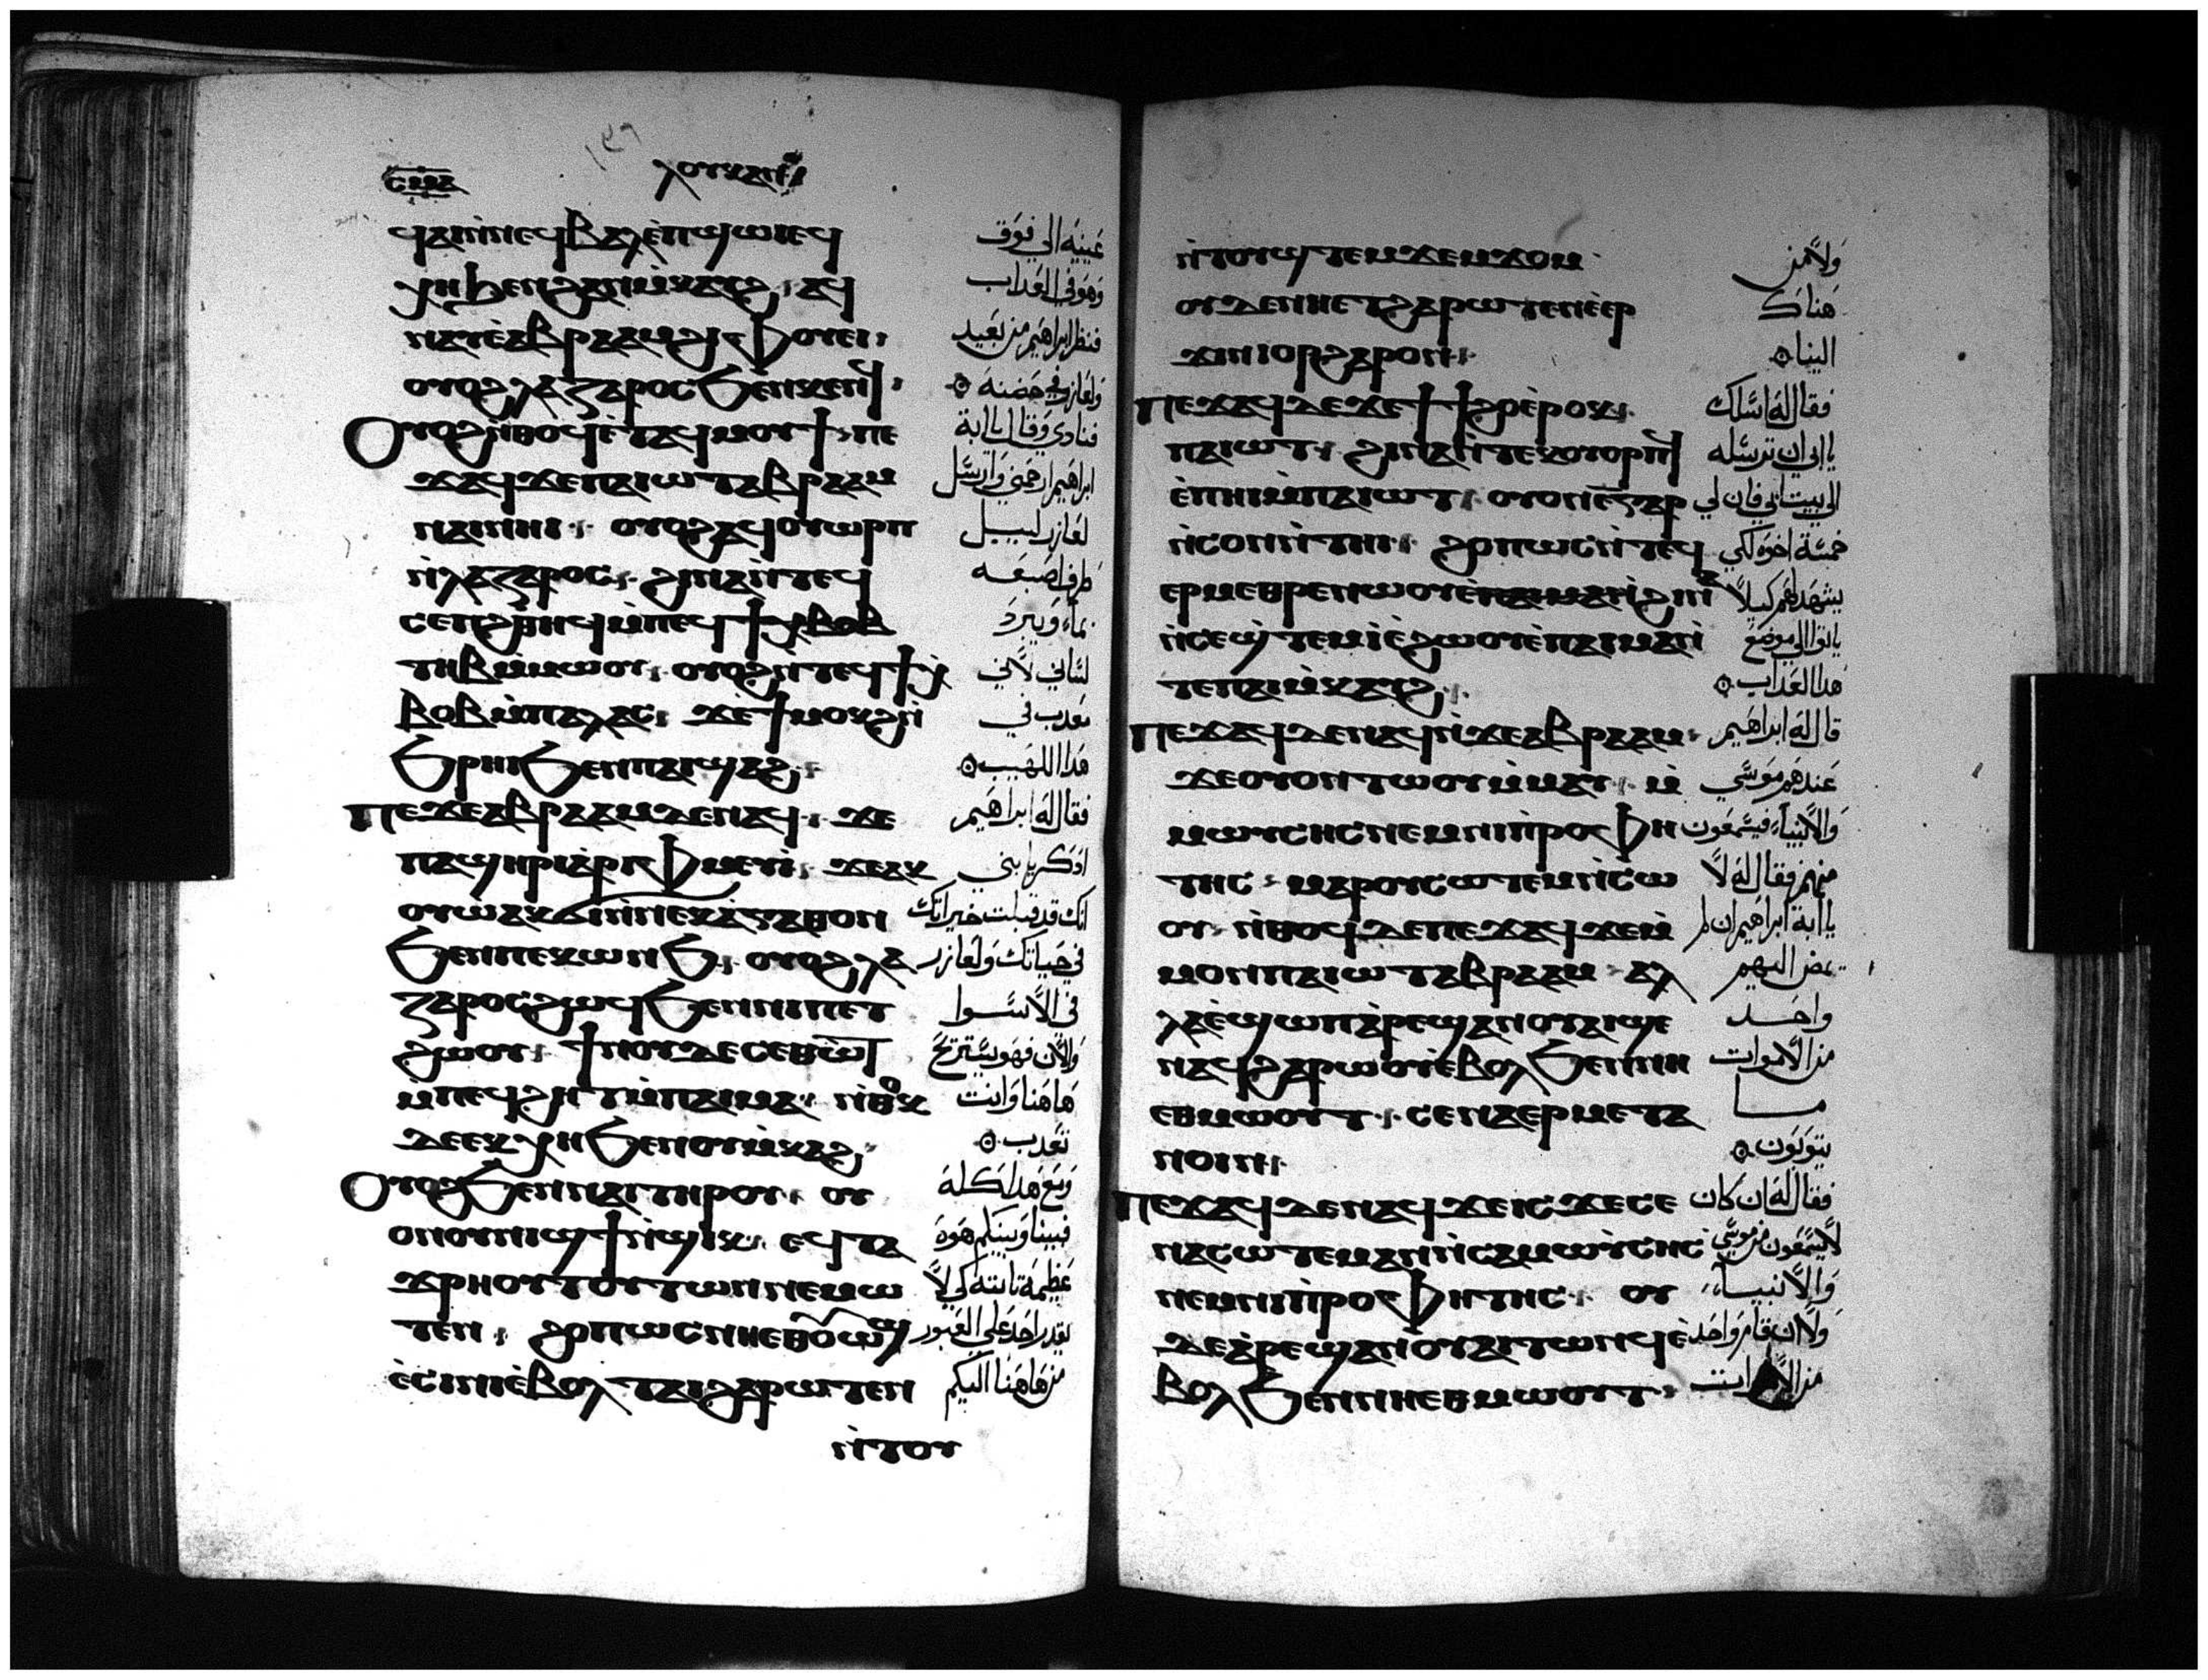 ⲗⲟⲩⲕⲁⲛ
ϥⲁⲓⲛ̀ⲛⲉϥⲃⲁⲗⲉ̀ⲡϣⲱⲓⲉϥ
ⲭⲏϧⲉⲛϩⲁⲛⲙ̀ⲕⲁⲩϩ · ⲁϥ
ⲛⲁⲩⲉ̀ⲁⲃⲣⲁⲁⲙϩⲓⲫⲟⲩⲉⲓ ·
ⲟⲩⲟϩⲗⲁⲍⲁⲣⲟⲥϧⲉⲛⲕⲉⲛϥ ·
ⲟⲩⲟϩⲛ̀ⲑⲟϥⲉ̀ⲧⲁϥⲙⲟⲩϯ · ⲡⲉ
ϫⲁϥϫⲉⲡⲁⲓⲱⲧⲁⲃⲣⲁⲁⲙ
ⲛⲁⲓⲛⲏⲓ · ⲟⲩⲟϩⲁϥⲟⲩⲱⲣⲡ
ⲛ̀ⲗⲁⲍⲁⲣⲟⲥ · ϩⲓⲛⲁⲛ̀ⲧⲉϥ
ⲥⲉⲡϩⲑⲏϥⲙ̀ⲡⲉϥ
ⲧⲏⲃⲙ̀ⲙⲱⲟⲩ · ⲟⲩⲟϩⲛⲧⲉϥϯⲭ
ⲃⲟⲃⲙ̀ⲡⲁⲗⲁⲥ · ϫⲉϯⲙⲟⲕϩⲛ̀
ϧⲣⲏⲓϧⲉⲛⲡⲁⲓϣⲁϩ ·
ⲡⲉϫⲉⲁⲃⲣⲁⲁⲙⲇⲉⲛⲁϥ · ϫⲉ
ⲡⲁϣⲏⲣⲓⲁ̀ⲣⲓⲫⲙⲉⲩⲓ̀ · ϫⲉⲁⲕ
ⲟⲩⲱ̀ⲁⲕϭⲓⲛ̀ⲛⲉⲕⲁ̀ⲅⲁⲑⲟⲛ
ϧⲉⲛⲡⲉⲕⲱⲛϧ · ⲟⲩⲟϩⲗⲁ
ⲍⲁⲣⲟⲥϩⲱϥϧⲉⲛⲛⲓⲡⲉⲧ
ϩⲱⲟⲩ · ϯⲛⲟⲩⲇⲉⲥⲉⲑⲱ̀ⲧ
ⲙ̀ⲡⲉϥϩⲏⲧⲙ̀ⲡⲁⲓⲙⲁ · ⲛ̀ⲑⲟⲕ
ⲇⲉⲉⲕⲭⲏϧⲉⲛⲟⲩⲙ̀ⲕⲁϩ ·
ⲟⲩⲟϩϧⲉⲛⲛⲁⲓⲧⲏⲣⲟⲩ · ⲟⲩ
ⲟⲛⲟⲩⲛⲓϣϯⲛ̀ϣⲓⲕ · ⲉϥⲧⲁ
ϫⲣⲏⲟⲩⲧⲟⲩⲧⲱⲛⲛⲉⲙⲱ
ⲧⲉⲛ · ϩⲟⲡⲱⲥⲛⲏⲉⲑⲟⲩⲱϣ
ⲉ̀ⲥⲓⲛⲓⲉ̀ⲃⲟⲗⲧⲁⲓϩⲁⲣⲱⲧⲉⲛ
ⲛ̀ⲧⲟⲩ
عينيه الي فوق
وهو في العداب
فنظر ابراهيم من بعيد
ولعازر في حضنه
فنادي وقال يا ابة
ابراهيم ارحمني وارسل
لعازر ليبل
طرف اصبعه
بماء ويبرد
لساني لاني
معدب في
هدا اللهيب
فقال له ابراهيم
ادكر يا بني
انك قد قبلت خيراتك
في حياتك ولعازر
في الاسوا
والان فهو يستريح
هاهنا وانت
تعدب
ومع هدا كله
فبيننا وبينكم هوه
عظيمة تابته كي لا
يقدر احد علي العبور
من هاهنا اليكم
ⲛ̀ⲧⲟⲩϣⲧⲉⲙϫⲉⲙϫⲟⲙ
ⲟⲩⲇⲉⲛⲏⲉⲧϩⲁⲣⲱⲧⲉⲛⲉ̀ⲉⲣ
ϫⲓⲛⲓⲟⲣϩⲁⲣⲟⲛ ·
ⲡⲉϫⲁϥⲇⲉϫⲉϯϯϩⲟⲉ̀ⲣⲟⲕ ·
ⲡⲁⲓⲱⲧ · ϩⲓⲛⲁⲛ̀ⲧⲉⲕⲟⲩⲟⲣⲡϥ
ⲉ̀ⲡⲏⲓⲙ̀ⲡⲁⲓⲱⲧ · ⲟⲩⲟⲛⲉ̅ⲅⲁⲣ
ⲛ̀ⲥⲟⲛⲛ̀ⲧⲏⲓ · ϩⲟⲡⲱⲥⲛ̀ⲧⲉϥ
ⲉⲣⲙⲉⲑⲣⲉⲛⲱⲟⲩ
ⲛ̀ⲥⲉϣ̀ⲧⲉⲙⲓ̀ⲉ̀ϩⲱⲟⲩⲉ̀ⲡⲁⲓⲙⲁⲛ̀
ⲧⲉⲡⲁⲓⲙ̀ⲕⲁⲩϩ ·
ⲡⲉϫⲁϥⲇⲉⲛⲁϥⲛ̀ϫⲉⲁⲃⲣⲁⲁⲙ ·
ϫⲉⲟⲩⲟⲛⲧⲱⲟⲩⲙ̀ⲙⲁⲩ · ⲙ̀
ⲙⲱⲩⲥⲏⲥⲛⲉⲙⲛⲓⲡ̀ⲣⲟⲫⲏ
ⲧⲏⲥ · ⲙⲁⲣⲟⲩⲥⲱⲧⲉⲙⲛ̀ⲥⲱ
ⲟⲩ · ⲛ̀ⲑⲟϥⲇⲉⲡⲉϫⲁϥϫⲉⲙ̀
ⲙⲟⲛⲡⲁⲓⲱⲧⲁⲃⲣⲁⲁⲙ · ⲁⲗ
ⲗⲁⲉ̀ϣⲱⲡⲁ̀ⲣⲉϣⲁⲛⲟⲩⲁⲓϣⲉ
ⲛⲁϥϩⲁⲣⲱⲟⲩⲉ̀ⲃⲟⲗϧⲉⲛⲛⲏ
ⲉⲑⲙⲱⲟⲩⲧ · ⲥⲉⲛⲁⲉⲣⲙⲉⲧⲁ
ⲛⲟⲓⲛ ·
ⲡⲉϫⲁϥⲇⲉⲛⲁϥϫⲉⲓⲥϫⲉⲥⲉ
ⲛⲁⲥⲱⲧⲉⲙⲁⲛⲛ̀ⲥⲁⲙⲱⲩ̀ⲥⲏⲥ
ⲛⲉⲙⲛⲓⲡ̀ⲣⲟⲫⲏⲧⲏⲥ · ⲟⲩ
ⲇⲉⲁ̀ⲣⲉϣⲁⲛⲟⲩⲁⲓⲧⲱⲛϥⲉ̀
ⲃⲟⲗϧⲉⲛⲛⲏⲉⲑⲙⲱⲟⲩⲧ ·
ولا من
هناك
الينا
فقال له اسلك
يا ابي ان ترسله
الي بيت ابي فان لي
خمسة اخوه لكي
يشهد لهم كيلا
ياتوا الي موضع
هدا العداب
قال له ابراهيم
عندهم موسي
والانبياء فيسمعون
منهم فقال له لا
يا ابة ابراهيم ان لم
يمض اليهم
واحد
من الاموات
مـا
يتوبون
فقال له ان كان
لا يسمعون من موسي
والانبياء
ولا ان قام واحد